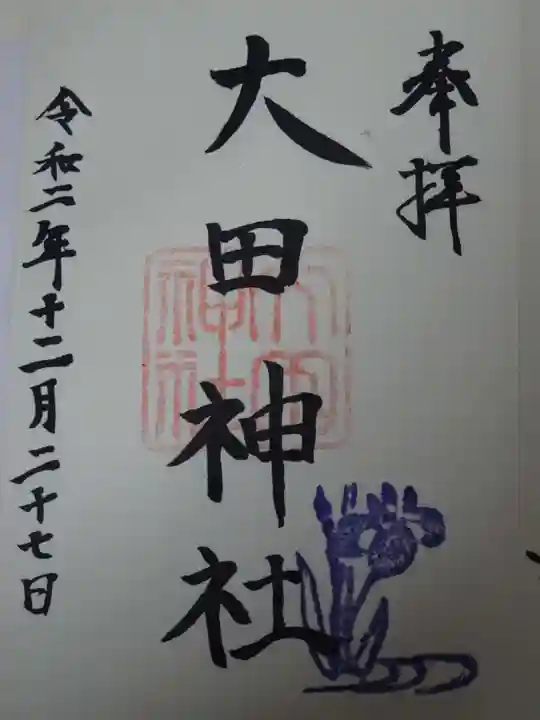 奉拝
大田神社
大田
神社
令和二年十二月二十七日